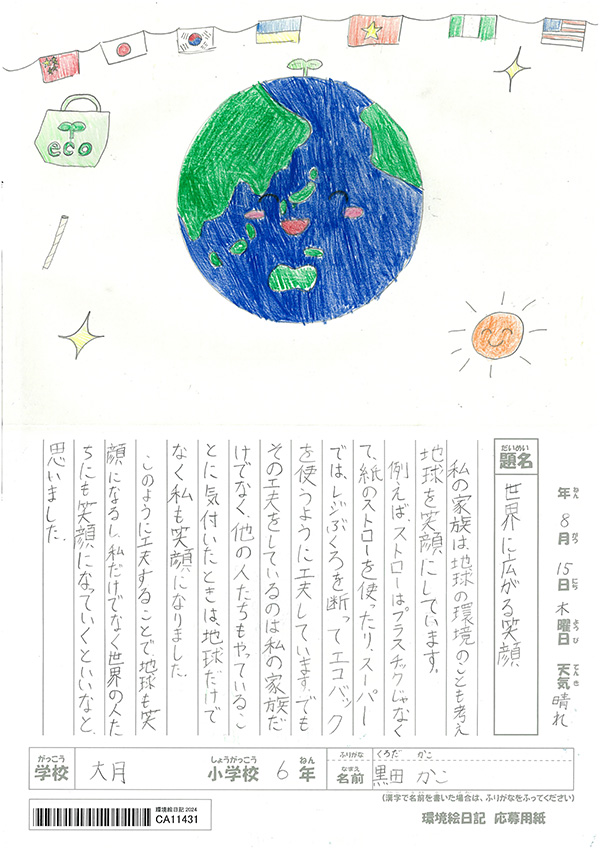 eco
年 8月 15日 木曜日 天気 晴れ
ねん がつ にち ようび てんき
だいめい
題名 世界に広がる笑顔
私の家族は、地球の環境のことも考え
地球を笑顔にしています。
例えば、ストローはプラスチクじゃなく
て、紙のストローを使ったり、スーパー
では、レジぶくろを断ってエコバック
を使うように工夫しています。でも
その工夫をしているのは私の家族だ
けでなく、他の人たちもやっているこ
とに気付いたときは、地球だけで
なく私も笑顔になりました。
このように工夫することで地球も笑
顔になるし、私だけでなく世界の人た
ちにも笑顔になっていくといいなと
思いました。
がっこう しょうがっこう ねん
学校 大月 小学校 6年
ふりがな くろだ かこ
なまえ
名前 黒田 かこ
(漢字で名前を書いた場合は、ふりがなをふってください)
環境絵日記 2024
CA11431
環境絵日記 応募用紙